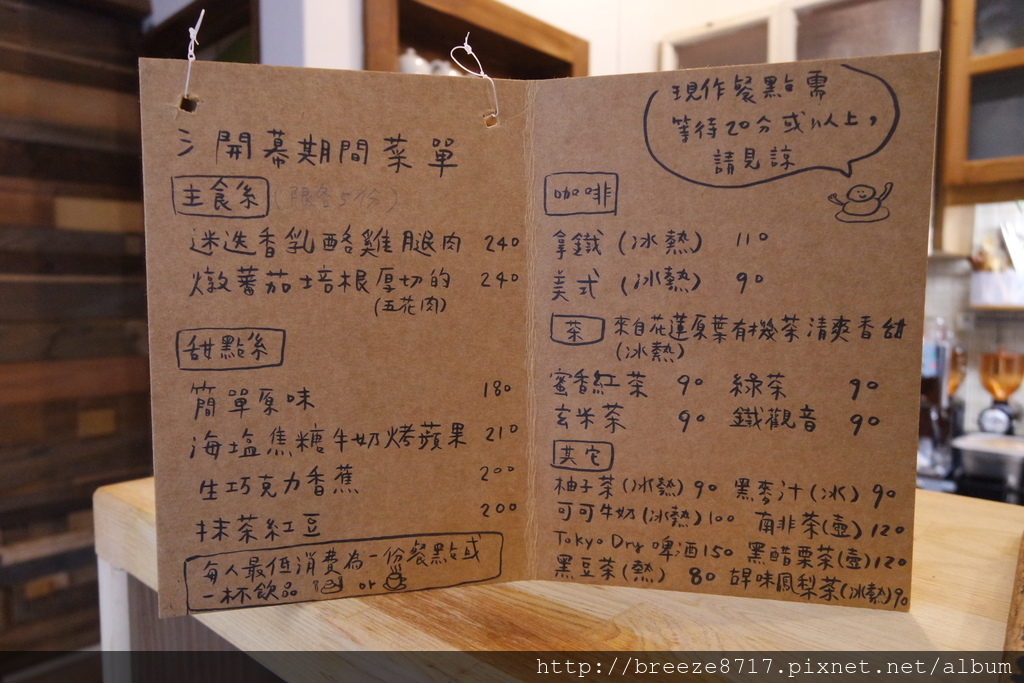 開幕期間菜單
主食系 (限各5份)
迷迭香乳酪雞腿肉 240
燉蕃茄培根厚切的 240
(五花肉)
甜點系
簡單原味 180
海塩焦糖牛奶烤蘋果 210
生巧克力香蕉 200
抹茶紅豆 200
每人最低消費為一份餐點或
一杯飲品 or
現作餐點需
等待20分或以上,
請見諒
咖啡
拿鐵 (冰熱) 110
美式 (冰熱) 90
茶 來自花蓮原葉有機茶清爽香甜
(冰熱)
蜜香紅茶 90 綠茶 90
玄米茶 90 鐵觀音 90
其它
柚子茶(冰熱) 90 黑麥汁(冰) 90
可可牛奶(冰熱)100 南非茶(壺)120
Tokyo Dry 啤酒150 黑醋栗茶(壺)120
黑豆茶(熱) 80 味鳳梨茶(冰熱)90
http://breeze8717.pixnet.net/album